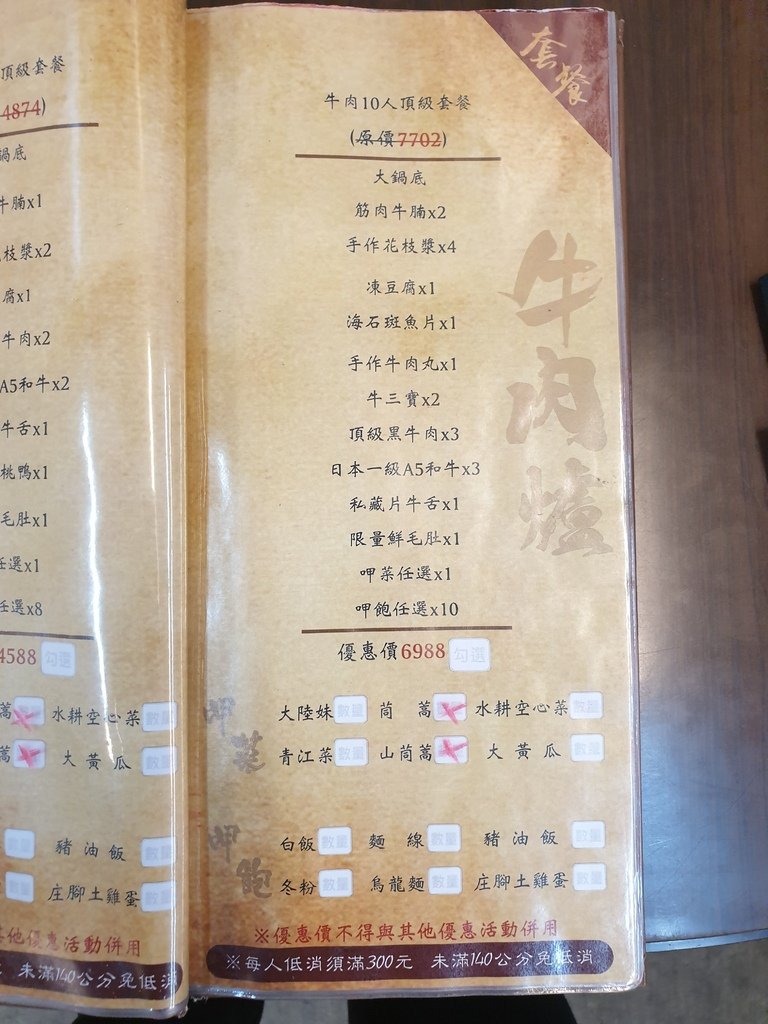 頂級套餐
4874)
鍋底
牛腩x1
枝漿x2
腐x1
牛肉x2
A5和牛x2
牛舌x1
桃鴨x1
毛肚x1
任選x1
任選x8
4588 勾選
蒿 水耕空心菜 數量
蒿 大黃瓜 數量
豬油飯 數量
庄腳土雞蛋 數量
其他優惠活動併用
未滿140公分免低消
套餐
牛肉10人頂級套餐
(原價7702)
大鍋底
筋肉牛腩x2
手作花枝漿x4
凍豆腐x1
海石斑魚片x1
手作牛肉丸x1
牛三寶x2
頂級黑牛肉x3
日本一級A5和牛x3
私藏片牛舌x1
限量鮮毛肚x1
呷菜任選x1
呷飽任選x10
優惠價6988 勾選
牛肉爐
呷菜
大陸妹 數量 茼蒿 水耕空心菜 數量
青江菜 數量 山茼蒿 大黃瓜 數量
呷飽
白飯 數量 麵線 數量 豬油飯 數量
冬粉 數量 烏龍麵 數量 庄腳土雞蛋 數量
※優惠價不得與其他優惠活動併用
※每人低消須滿300元 未滿140公分免低消